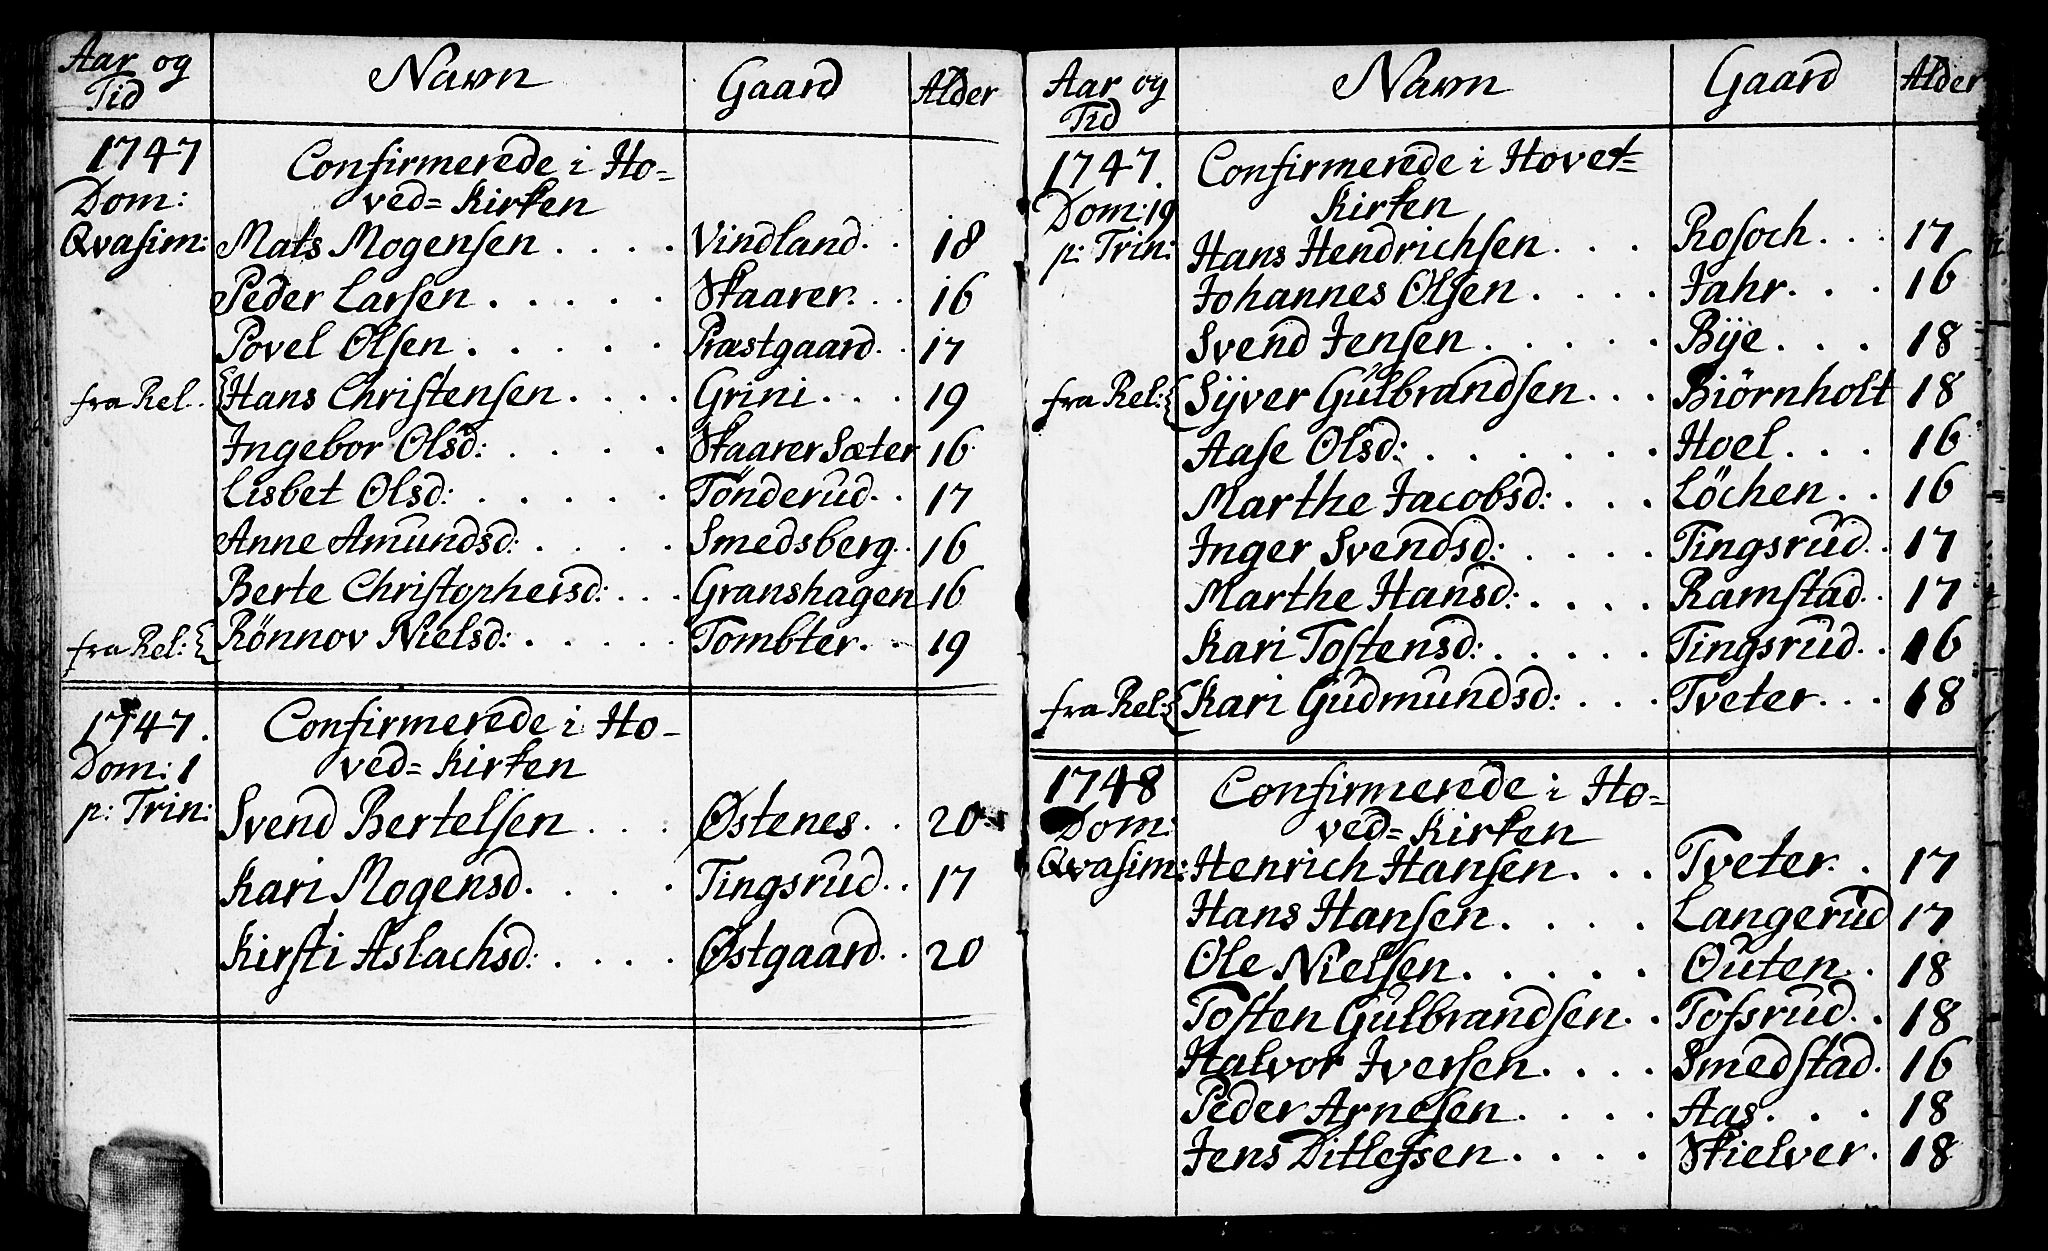 Aar og Tid Navn Gaard Alder
1747 Confirmerede i Ho=
Dom: ved=Kirken
Qvasim: Mats Mogensen . . . . Vindland . . 18
Peder Larsen . . . . . Skaarer . . 16
Povel Olsen . . . . . Præstgaard . . 17
fra Rel. { Hans Christensen . . . . Grini . . . 19
Ingebor Olsd: . . . . Skaarer Sæter 16
Lisbet Olsd: . . . . . Tönderud . . 17
Anne Amundsd: . . . . Smedsberg . . 16
Berte Christophersd: . . . Granshagen 16
fra Rel: { Rönnov Nielsd: . . . . . Tombter . . 19
1747. Confirmerede i Ho-
Dom: 1 ved=Kirken
p: Trin: Svend Bertelsen . . . Østenes . . 20
Kari Mogensd. . . . . Tingsrud . . 17
Kirsti Aslachsd: . . . . Østgaard . . 20
Aar og Tid Navn Gaard Alder
1747. Confirmerede i Hovet=
Dom: 19 Kirken
p: Trin: Hans Hendrichsen . . . Rosoch . . . 17
Johannes Olsen . . . . Jahr . . . 16
Svend Jensen . . . . . Bije . . . 18
fra Rel: { Sijver Gulbrandsen . . . Biörnholt 18
Aase Olsd: . . . . . . Hoel . . . 16
Marthe Jacobsd: . . . Löchen . . 16
Inger Svendsd: . . . . Tingsrud . . 17
Marthe Hansd: . . . . Ramstad . . 17
Kari Tostensd: . . . . . Tingsrud . . 16
fra Rel: { Kari Gudmundsd: . . . Tveter . . . 18
1748 Confirmerede i Ho=
Dom: ved=Kirken
Qvasim: Henrich Hansen . . . Tveter . . 17
Hans Hansen . . . . Langerud 17
Ole Nielsen . . . . . Outen . . 18
Tosten Gulbrandsen . . Tofsrud . . 18
Halvor Iversen . . . . Smedstad . 16
Peder Arnesen . . . . Aas . . . 18
Jens Ditlefsen . . . . Skielver . 18